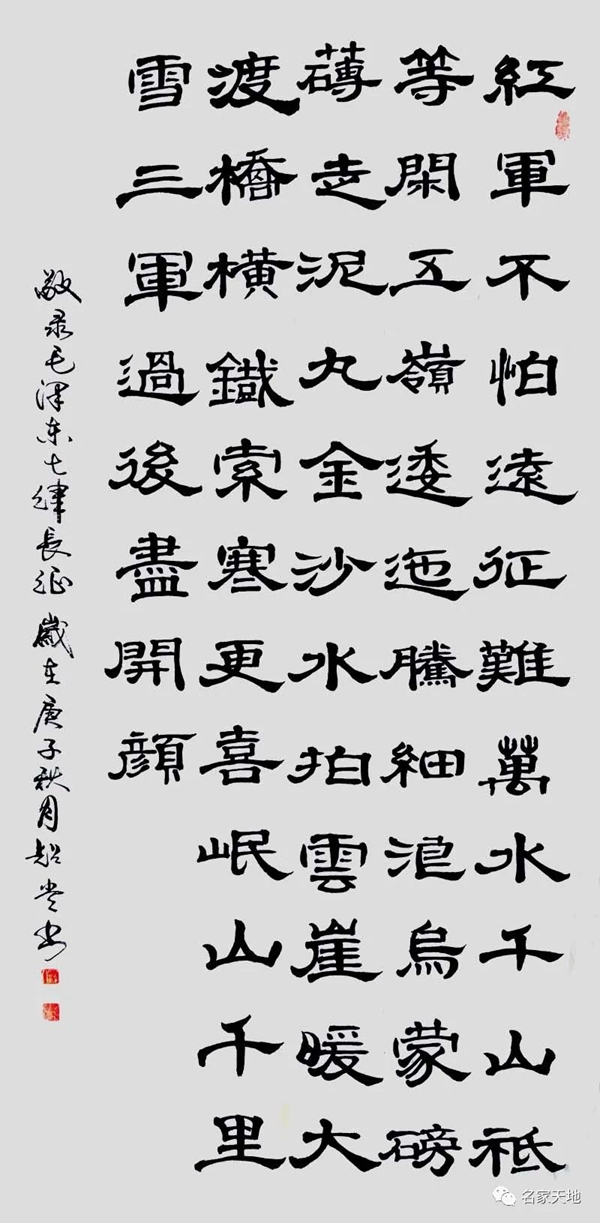 紅軍不怕遠征難萬水千山祗
等閑五嶺逶迤騰細浪烏蒙磅
礴走泥丸金沙水拍雲崖暖大
渡橋横鐵索寒更喜岷山千里
雪三軍過後盡開顔
敬录毛泽东七律長征 歲在庚子秋月超书
名家天地